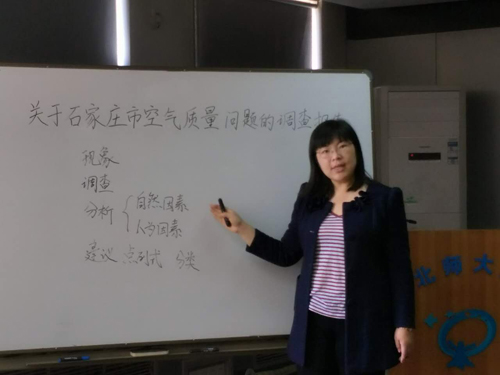 关于石家庄市空气质量问题的调查报告
现象
调查
分析 { 自然因素
人为因素
建议 点列式 分类
北师大